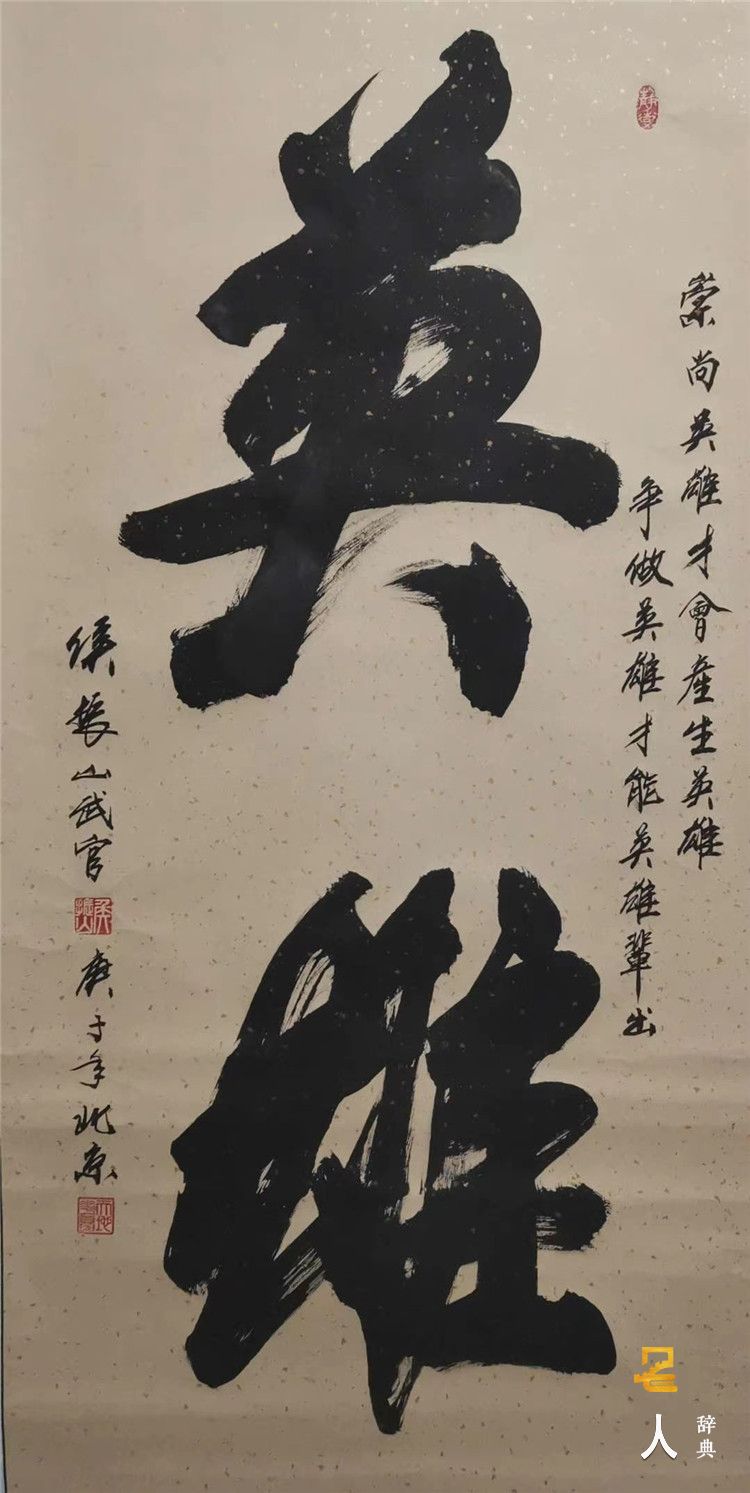 英雄
崇尚英雄才會產生英雄
争做英雄才能英雄輩出
侯振山武官
庚子年北京
名人
辞典